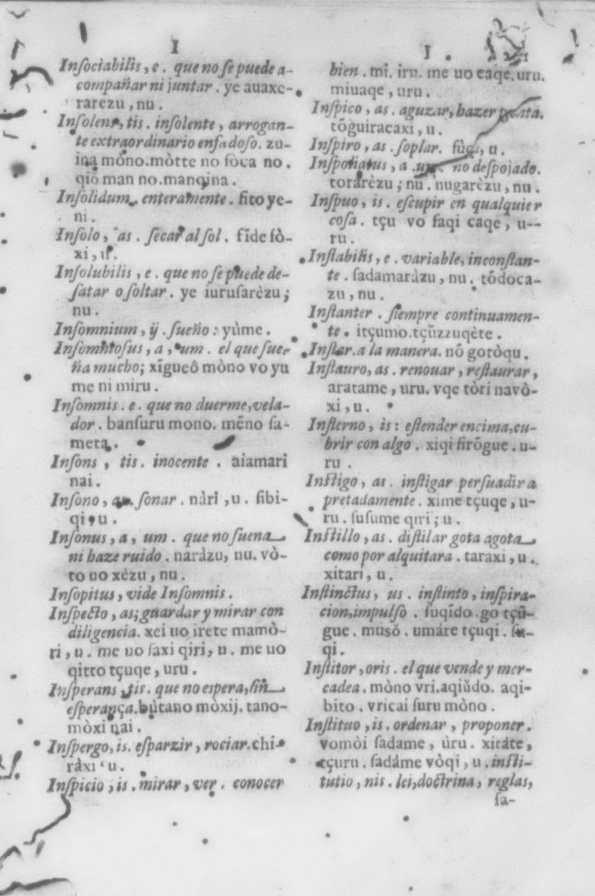 I
Insociabilis, e. que no se puede a-
compañar ni juntar. ye auaxe-
rarezu, nu.
Insolens, tis. insolente, arrogan-
te extraordinario enfadoso. zu-
ina móno. mòtte no foca no.
qiŏ man no. manqina.
Insolidum. enteramente. fito ye-
ni.
Insolo, as. secar al sol. fide fò-
xi, u.
Insolubilis, e. que no se puede de-
satar o soltar. ye iurusarèzu;
nu.
Insomnium, ÿ. sueño: yùme.
Insomniosus, a, um. el que sue-
ña mucho; xigueŏ mòno vo yu
me ni miru.
Insomnis. e. que no duerme, vela-
dor. bansuru mono. mĕno sa-
meta.
Insons, tis. inocente. aiamari
nai.
Insono, as. sonar. nàri, u. fibi-
qi, u.
Insonus, a, um. que no suena
ni haze ruido. naràzu, nu. vò-
to uo xèzu, nu.
Insopitus, vide Insomnis.
Inspecto, as; guardar y mirar con
diligencia. xei uo irete mamò-
ri, u. me uo saxi qiri, u. me uo
qitto tçuqe, uru.
Insperans, tis. que no espera, sin
esperança. bùtano mòxij. tano-
mòxi nai.
Inspergo, is. esparzir, rociar. chi-
ràxi, u.
Inspicio, is. mirar, ver. conocer
I
bien. mi, iru. me uo caqe, uru.
miuaqe, uru.
Inspico, as. aguzar, hazer punta.
tŏguiracaxi, u.
Inspiro, as. soplar. fuqi, u.
Inspoliatus, a, um. no despojado.
torarèzu; nu. nugarèzu, nu.
Inspuo, is. escupir en qualquier
cosa. tçu vo faqi caqe, u-
ru.
Instabilis, e. variable, inconstan-
te. sadamaràzu, nu. tŏdoca-
zu, nu.
Instanter. siempre continuamen-
te. itçumo. tçŭzzuqète.
Instar. a la manera. nŏ gotòqu.
Instauro, as. renouar, restaurar,
aratame, uru. vqe tòri navò-
xi, u.
Insterno, is: estender encima, cu-
brir con algo. xiqi firŏgue. u-
ru.
Instigo, as. instigar persuadir a
pretadamente. xime tçuqe, u-
ru. susume qiri; u.
Instillo, as. distilar gota a gota
como por alquitara. taraxi, u.
xitari, u.
Instinctus, us. instinto, inspira-
cion, impulso. suqido. go tçŭ-
gue. musŏ. umàre tçuqi. su-
qi.
Institor, oris. el que vende y mer-
cadea. mòno vri. aqiŭdo. aqi-
bito. vricai suru mòno.
Instituo, is. ordenar, proponer.
vomòi sadame, ùru. xitàte,
tçuru. sadàme vòqi, u. insti-
tutio, nis. lei, doctrina, reglas,
sa-